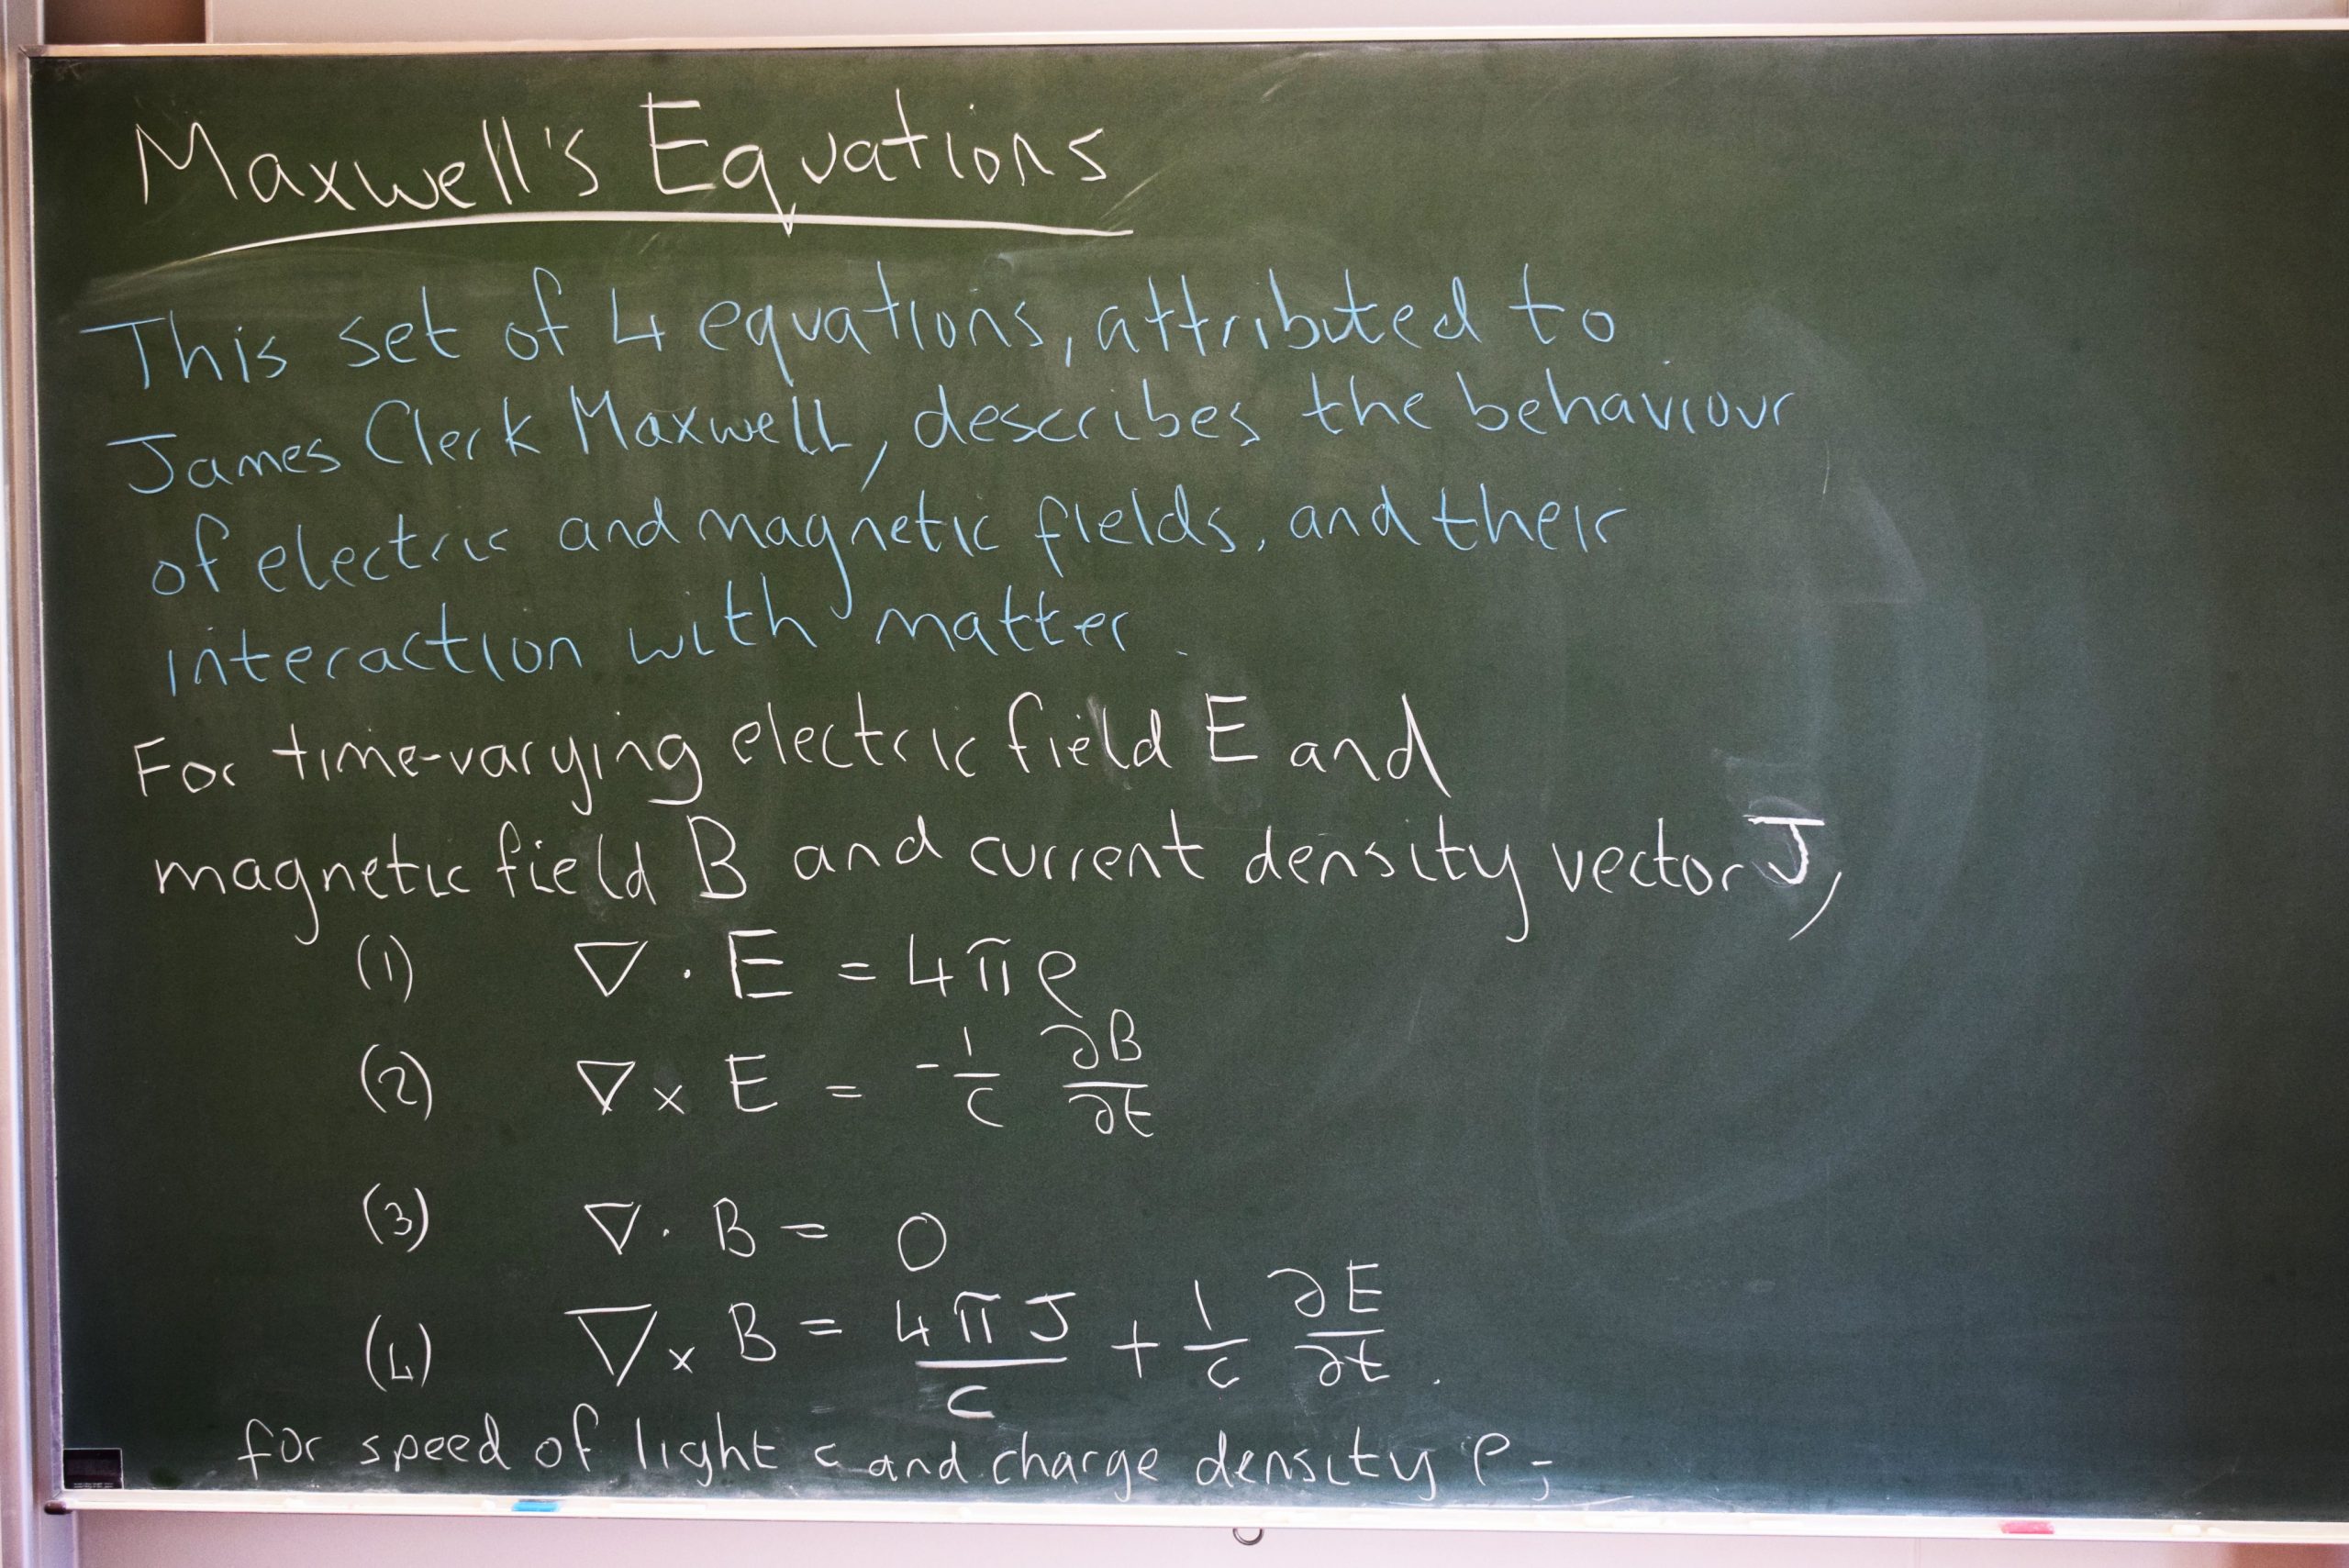 Maxwell's Equations
This set of 4 equations, attributed to
James Clerk Maxwell, describes the behaviour
of electric and magnetic fields, and their
interaction with matter.
For time-varying electric field E and
magnetic field B and current density vector J,
(1) ∇ · E = 4πρ
(2) ∇ × E = -1/c ∂B/∂t
(3) ∇ · B = 0
(4) ∇ × B = 4πJ/c + 1/c ∂E/∂t.
for speed of light c and charge density ρ;